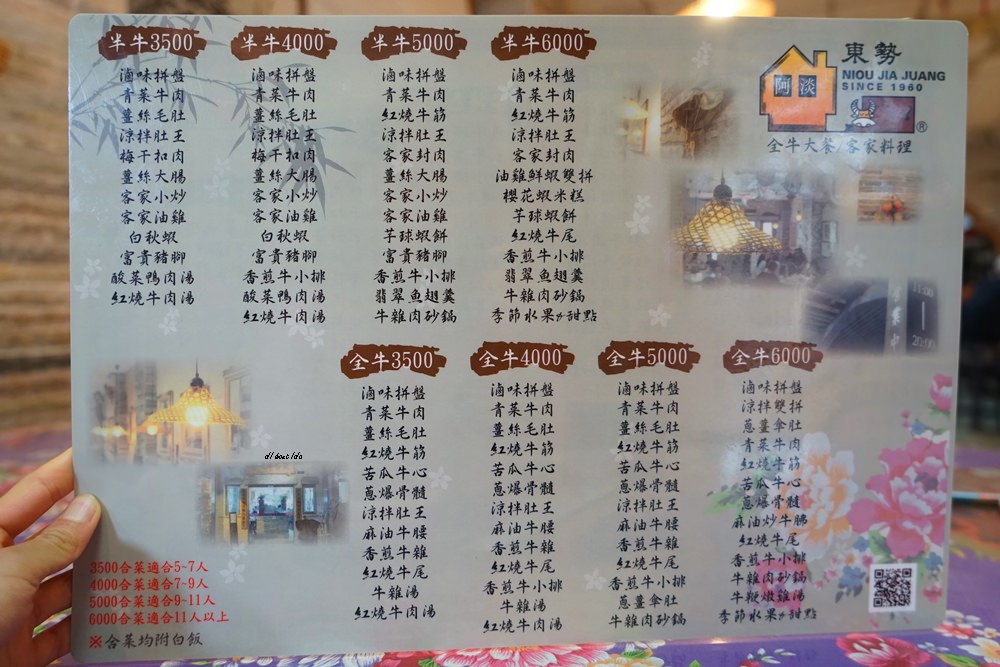 半牛3500
滷味拼盤
青菜牛肉
薑絲毛肚
涼拌肚王
梅干扣肉
薑絲大腸
客家小炒
客家油雞
白秋蝦
富貴豬腳
酸菜鴨肉湯
紅燒牛肉湯
半牛4000
滷味拼盤
青菜牛肉
薑絲毛肚
涼拌肚王
梅干扣肉
薑絲大腸
客家小炒
客家油雞
白秋蝦
富貴豬腳
香煎牛小排
酸菜鴨肉湯
紅燒牛肉湯
半牛5000
滷味拼盤
青菜牛肉
紅燒牛筋
涼拌肚王
客家封肉
薑絲大腸
客家小炒
客家油雞
芋球蝦餅
富貴豬腳
香煎牛小排
翡翠魚翅羹
牛雜肉砂鍋
半牛6000
滷味拼盤
青菜牛肉
紅燒牛筋
涼拌肚王
客家封肉
油雞鮮蝦雙拼
櫻花蝦米糕
芋球蝦餅
紅燒牛尾
香煎牛小排
翡翠魚翅羹
牛雜肉砂鍋
季節水果&甜點
東勢
阿淡
NIOU JIA JUANG
SINCE 1960
®
全牛大餐/客家料理
11:00
20:00
全牛3500
滷味拼盤
青菜牛肉
薑絲毛肚
紅燒牛筋
苦瓜牛心
蔥爆骨髓
涼拌肚王
麻油牛腰
香煎牛雜
紅燒牛尾
牛雜湯
紅燒牛肉湯
全牛4000
滷味拼盤
青菜牛肉
薑絲毛肚
紅燒牛筋
苦瓜牛心
蔥爆骨髓
涼拌肚王
麻油牛腰
香煎牛雜
紅燒牛尾
香煎牛小排
牛雜湯
紅燒牛肉湯
全牛5000
滷味拼盤
青菜牛肉
薑絲毛肚
紅燒牛筋
苦瓜牛心
蔥爆骨髓
涼拌肚王
麻油牛腰
香煎牛雜
紅燒牛尾
香煎牛小排
蔥薑傘肚
牛雜肉砂鍋
全牛6000
滷味拼盤
涼拌雙拼
蔥薑傘肚
青菜牛肉
紅燒牛筋
苦瓜牛心
蔥爆骨髓
麻油炒牛𦟌
紅燒牛尾
香煎牛小排
牛雜肉砂鍋
牛鞭燉雞湯
季節水果&甜點
3500合菜適合5~7人
4000合菜適合7~9人
5000合菜適合9~11人
6000合菜適合11人以上
※合菜均附白飯